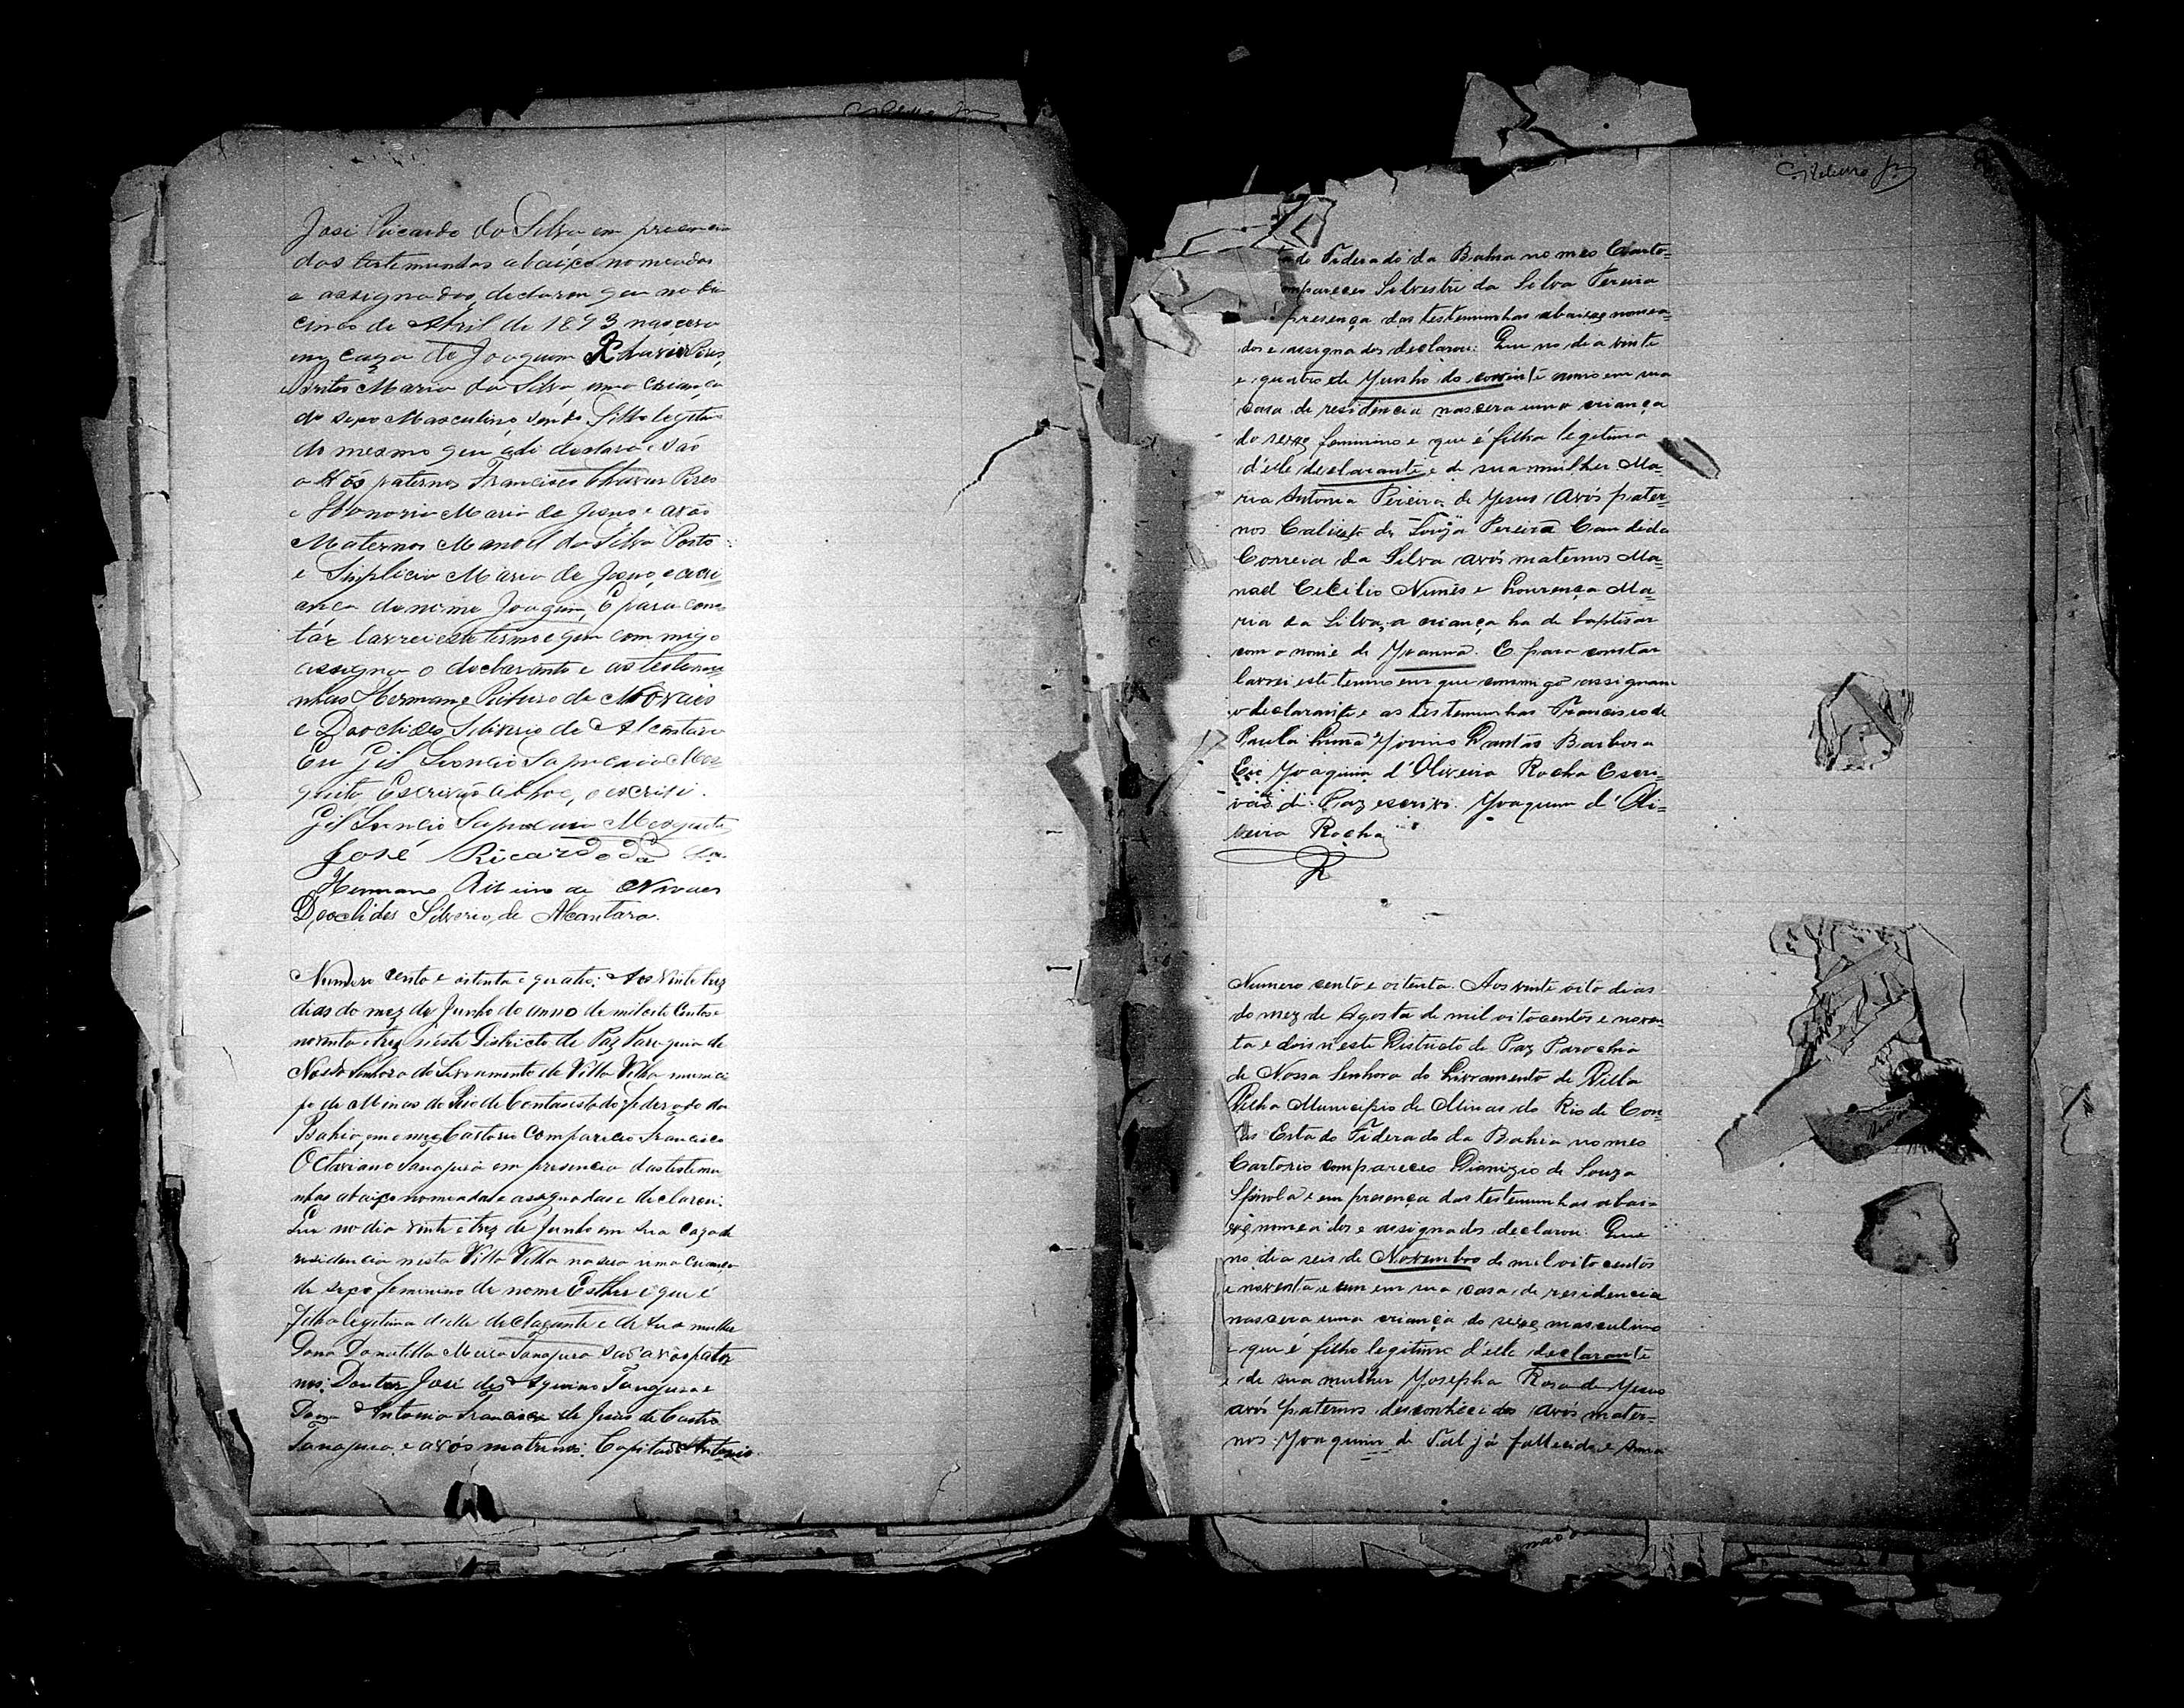 José Ricardo da Silva em presencia
das testemunhas abaixo nomeadas
e assignados, declarou que no dia
cinco de Abril de 1893 nascera
em caza de Joaquim Chavier Pires,
Maria da Silva, uma criança
do sexo Masculino, sendo Filho legitimo
do mesmo que ali declara. São
avós paternos Francisco Chavier Pires
e Honoria Maria de Jesus e avós
Maternos Manoel da Silva Porto
e Simplicia Maria de Jesus, e a cri
ança de nome Joaquim, E para cons
tár lavrei este termo e que com migo
assigna o declarante e as testemu
nhas Hermano Ribeiro de Novaes
e Deoclides Silverio de Alcantara
Eu Gil Leoncio Sapucaia Mes
quita Escrivão ad hoc, o escrivi.
Gil Leoncio Sapucaia Mesquita
José Ricardo da Sa.
Hermano Ribeiro de Novaes
Deoclides Silverio, de Alcantara.
Numero cento e oitenta e quatro: Aos Vinte trez
dias do mez de Junho do anno de mil oito centos e
noventa e trez n'este Districto de Paz Paroquia de
Nossa Senhora do Livramento de Villa Velha munici
pio de Minas do Rio de Contas estado federado da
Bahia, em o meu Cartorio Compareceo Francisco
Octaviano Tanajura em presencia das testemu
nhas abaixo nomeadas e assignadas e declarou:
Que no dia vinte e trez de Junho em sua caza de
residencia nesta Villa Velha nascera uma Criança
de sexo feminino de nome Esther e que é
filha legitima d'elle declarante e de sua mulher
Dona Donatilla Meira Tanajura sua avós pater
nos: Doutor José de Aquino Tanajura e
Dona Antonia Francisca de Jesus de Castro
Tanajura, e avós maternos: Capitão Antonio
Ribeiro Jr.
tado Federado da Bahia no meo Carto=
compareceo Silvestre da Silva Pereira
presença das testemunhas abaixo nomea=
dos e assignados declarou: Que no dia vinte
e quatro de Junho do corrente anno em sua
casa de residencia nascera uma criança
do sexo feminino e que é filha legitima
d'elle declarante e de sua mulher Ma=
ria Antonia Pereira de Jesus Avós pater=
nos Calixto de Souza Pereira Candida
Correia da Silva avós maternos Ma=
noel Cicilio Nunes e Lourença Ma=
ria da Silva, a criança ha de baptisar
com o nome de Joanna. E para constar
lavrei este termo em que commigo assignam
o declarante e as testemunhas Francisco de
Paula Lima Jovino Dantas Barbosa
Eu Joaquim d'Oliveira Rocha Escri=
vão di Paz escrivi. Joaquim d'Oli=
veira Rocha
R
Numero cento e oitenta. Aos vinte oito dias
do mez de Agosto de mil oitocentos e noven=
ta e dois n'este Districto de Paz Parochia
de Nossa Senhora do Livramento de Villa
Velha Municipio de Minas do Rio de Con=
tas Estado Federado da Bahia no meo
Cartorio compareceo Dionizio de Souza
Spinola e em presença das testemunhas abai=
xo nomeados e assignados declarou: Que
no dia seis de Novembro de mil oito centos
e noventa e um em sua casa, de residencia
nascera uma criança do sexo masculino
e que é filho legitimo d'elle declarante
e de sua mulher Josepha Rosa de Jesus
avós paternos desconhecidos avós mater=
nos Joaquim de Tal já fallecido e Anna